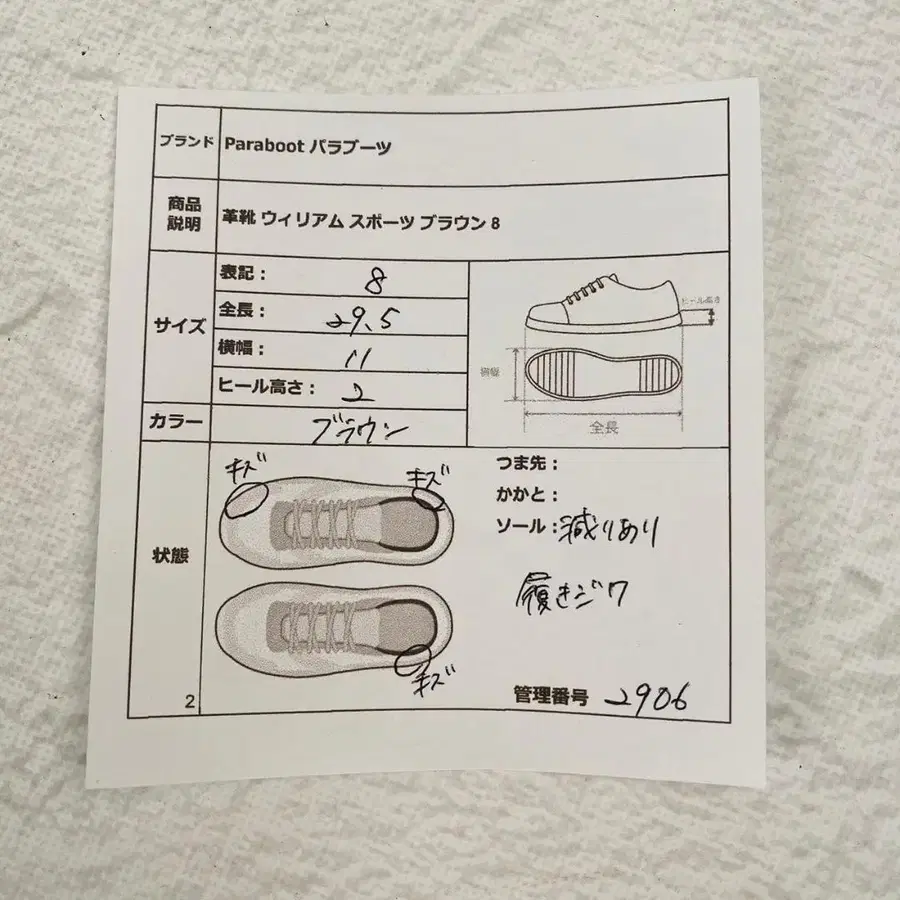 ブランド Paraboot パラブーツ
商品説明 革靴 ウィリアム スポーツ ブラウン 8
サイズ
表記： 8
全長： 29.5
横幅： 11
ヒール高さ： 2
ヒール高さ
横幅
全長
カラー ブラウン
状態
キズ
キズ
キズ
つま先：
かかと：
ソール：減りあり
履きジワ
管理番号 2906
2